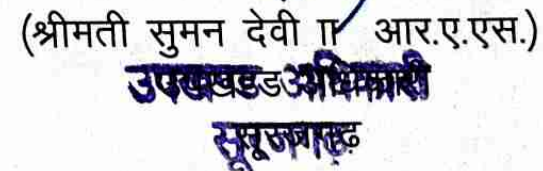 (श्रीमती सुमन देवी II आर.ए.एस.)
उपखण्ड अधिकारी
सूरजगढ़